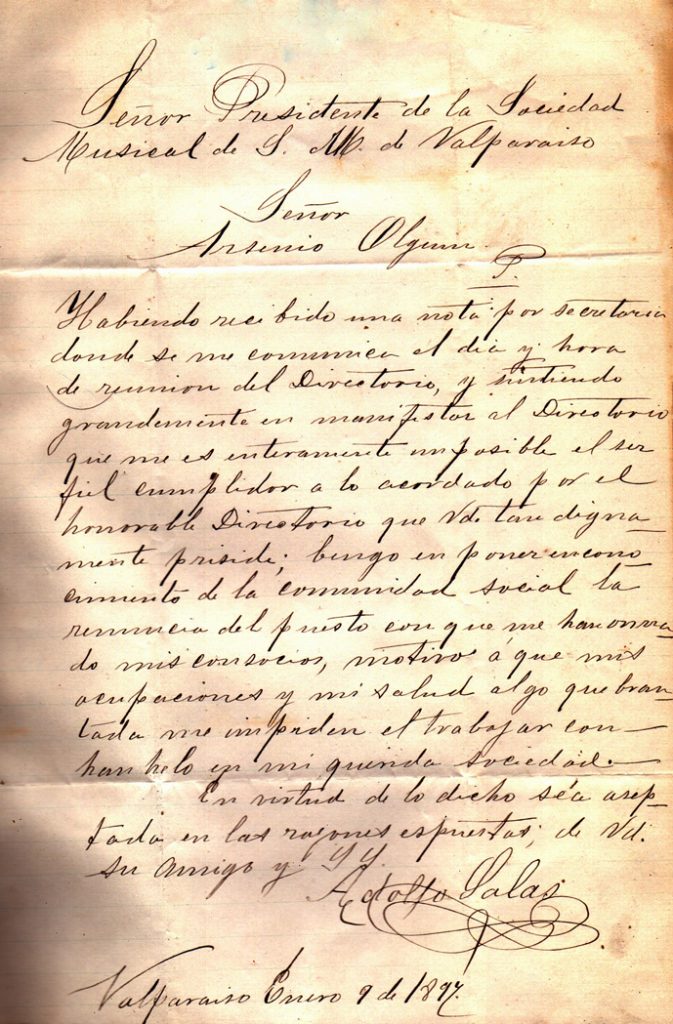 Señor Presidente de la Sociedad
Musical de S. M. de Valparaiso
Señor
Arsenio Olguin
P
Habiendo recibido una nota por secretaria
donde se me comunica el dia y hora
de reunion del Directorio, y sintiendo
grandemente en manifestar al Directorio
que me es enteramente imposible el ser
fiel cumplidor a lo acordado por el
honorable Directorio que Vd. tan digna-
mente priside; bengo en poner en cono-
cimiento de la comunidad social la
renuncia del puesto con que me han onra-
do mis consocios, motivo á que mis
ocupaciones y mi salud algo quebran-
tada me impiden el trabajar con
hanhelo en mi querida sociedad.
En virtud de lo dicho séa asep-
tada en las razones espuestas; de Vd.
su amigo y
Adolfo Salas
Valparaiso Enero 9 de 1897.